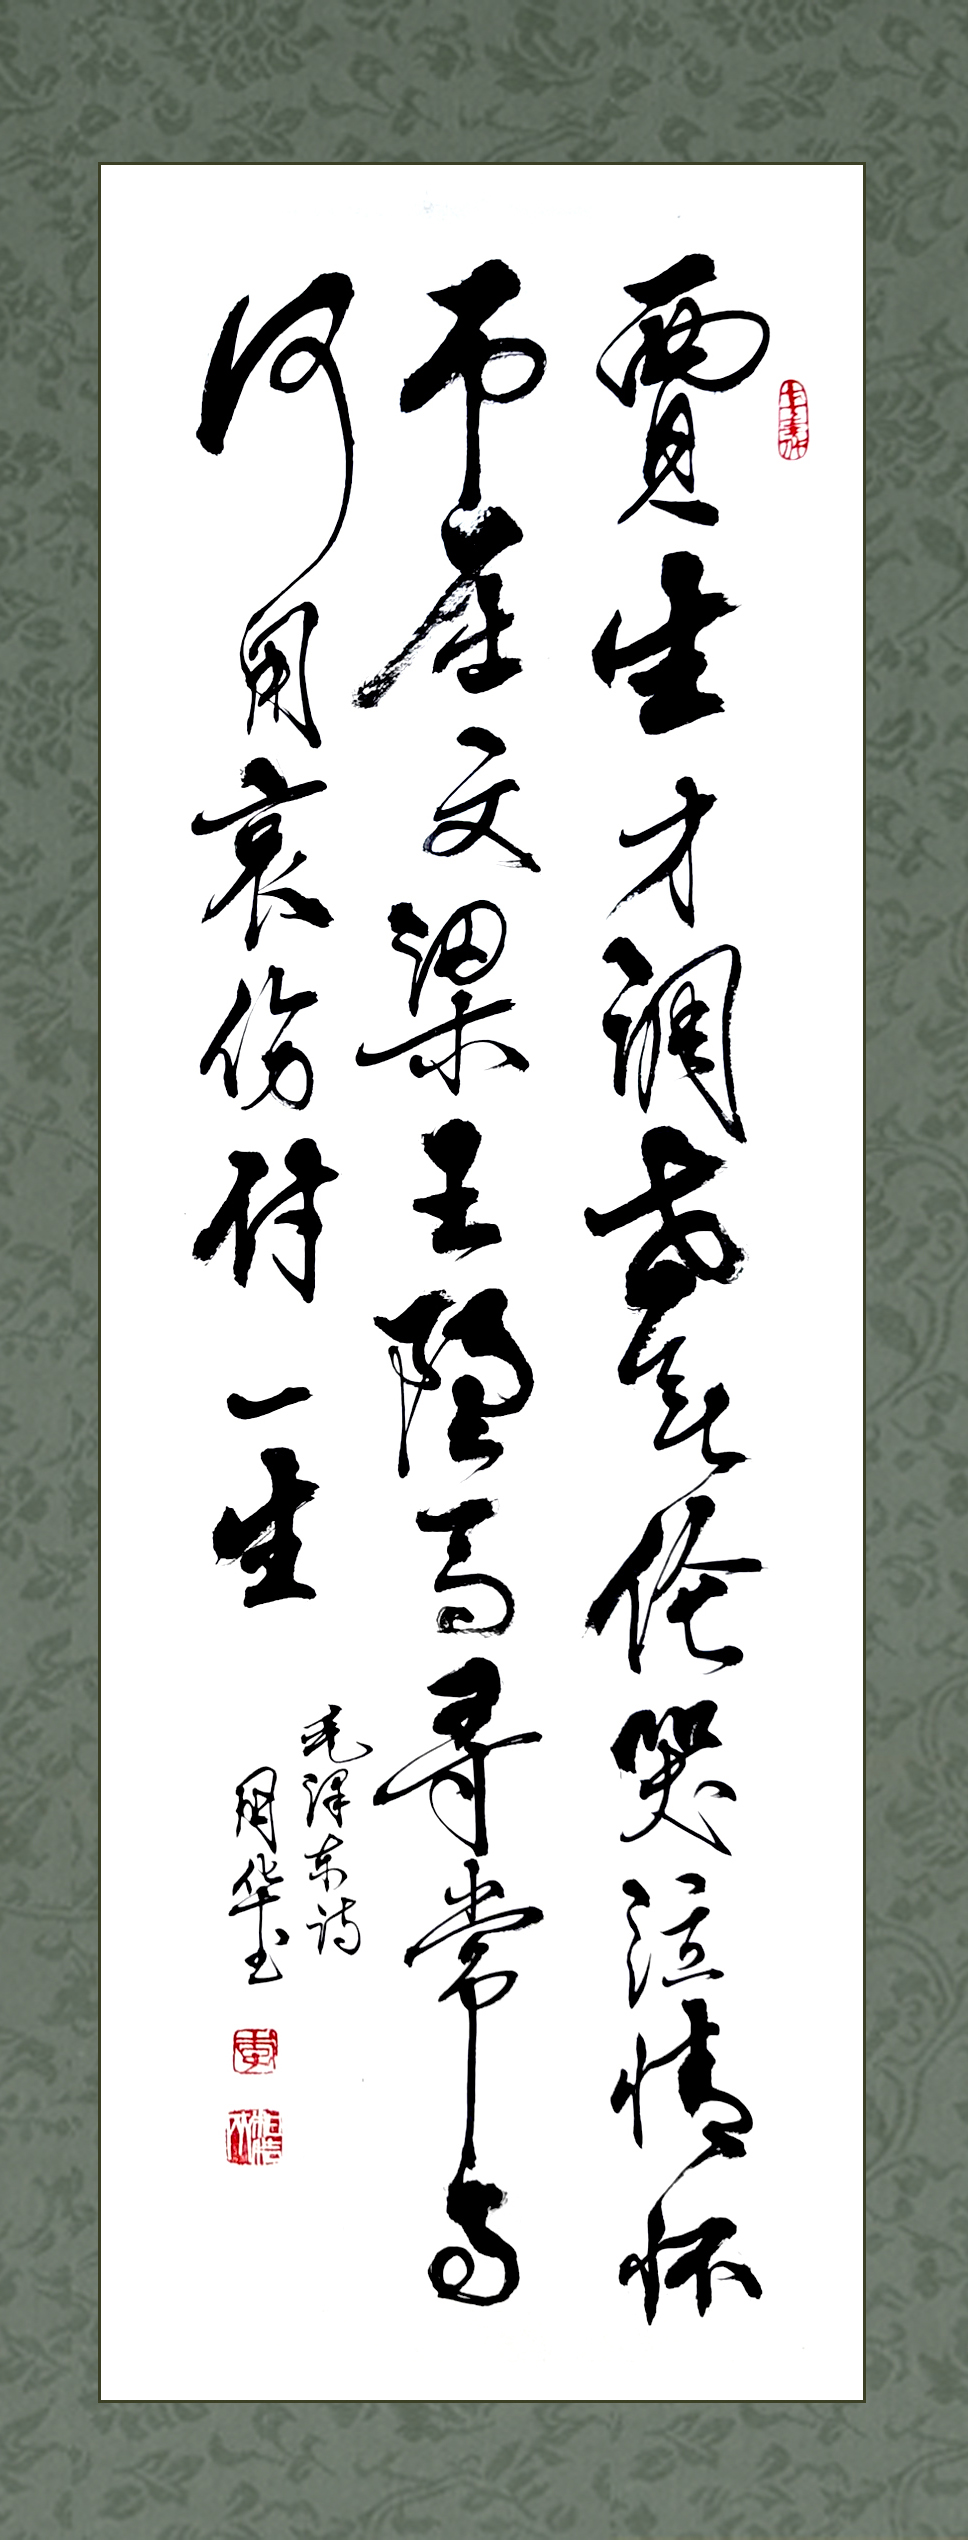 贾生才调世无伦哭泣情怀
吊屈文梁王堕马寻常事
何用哀伤付一生
毛泽东诗
周华玉